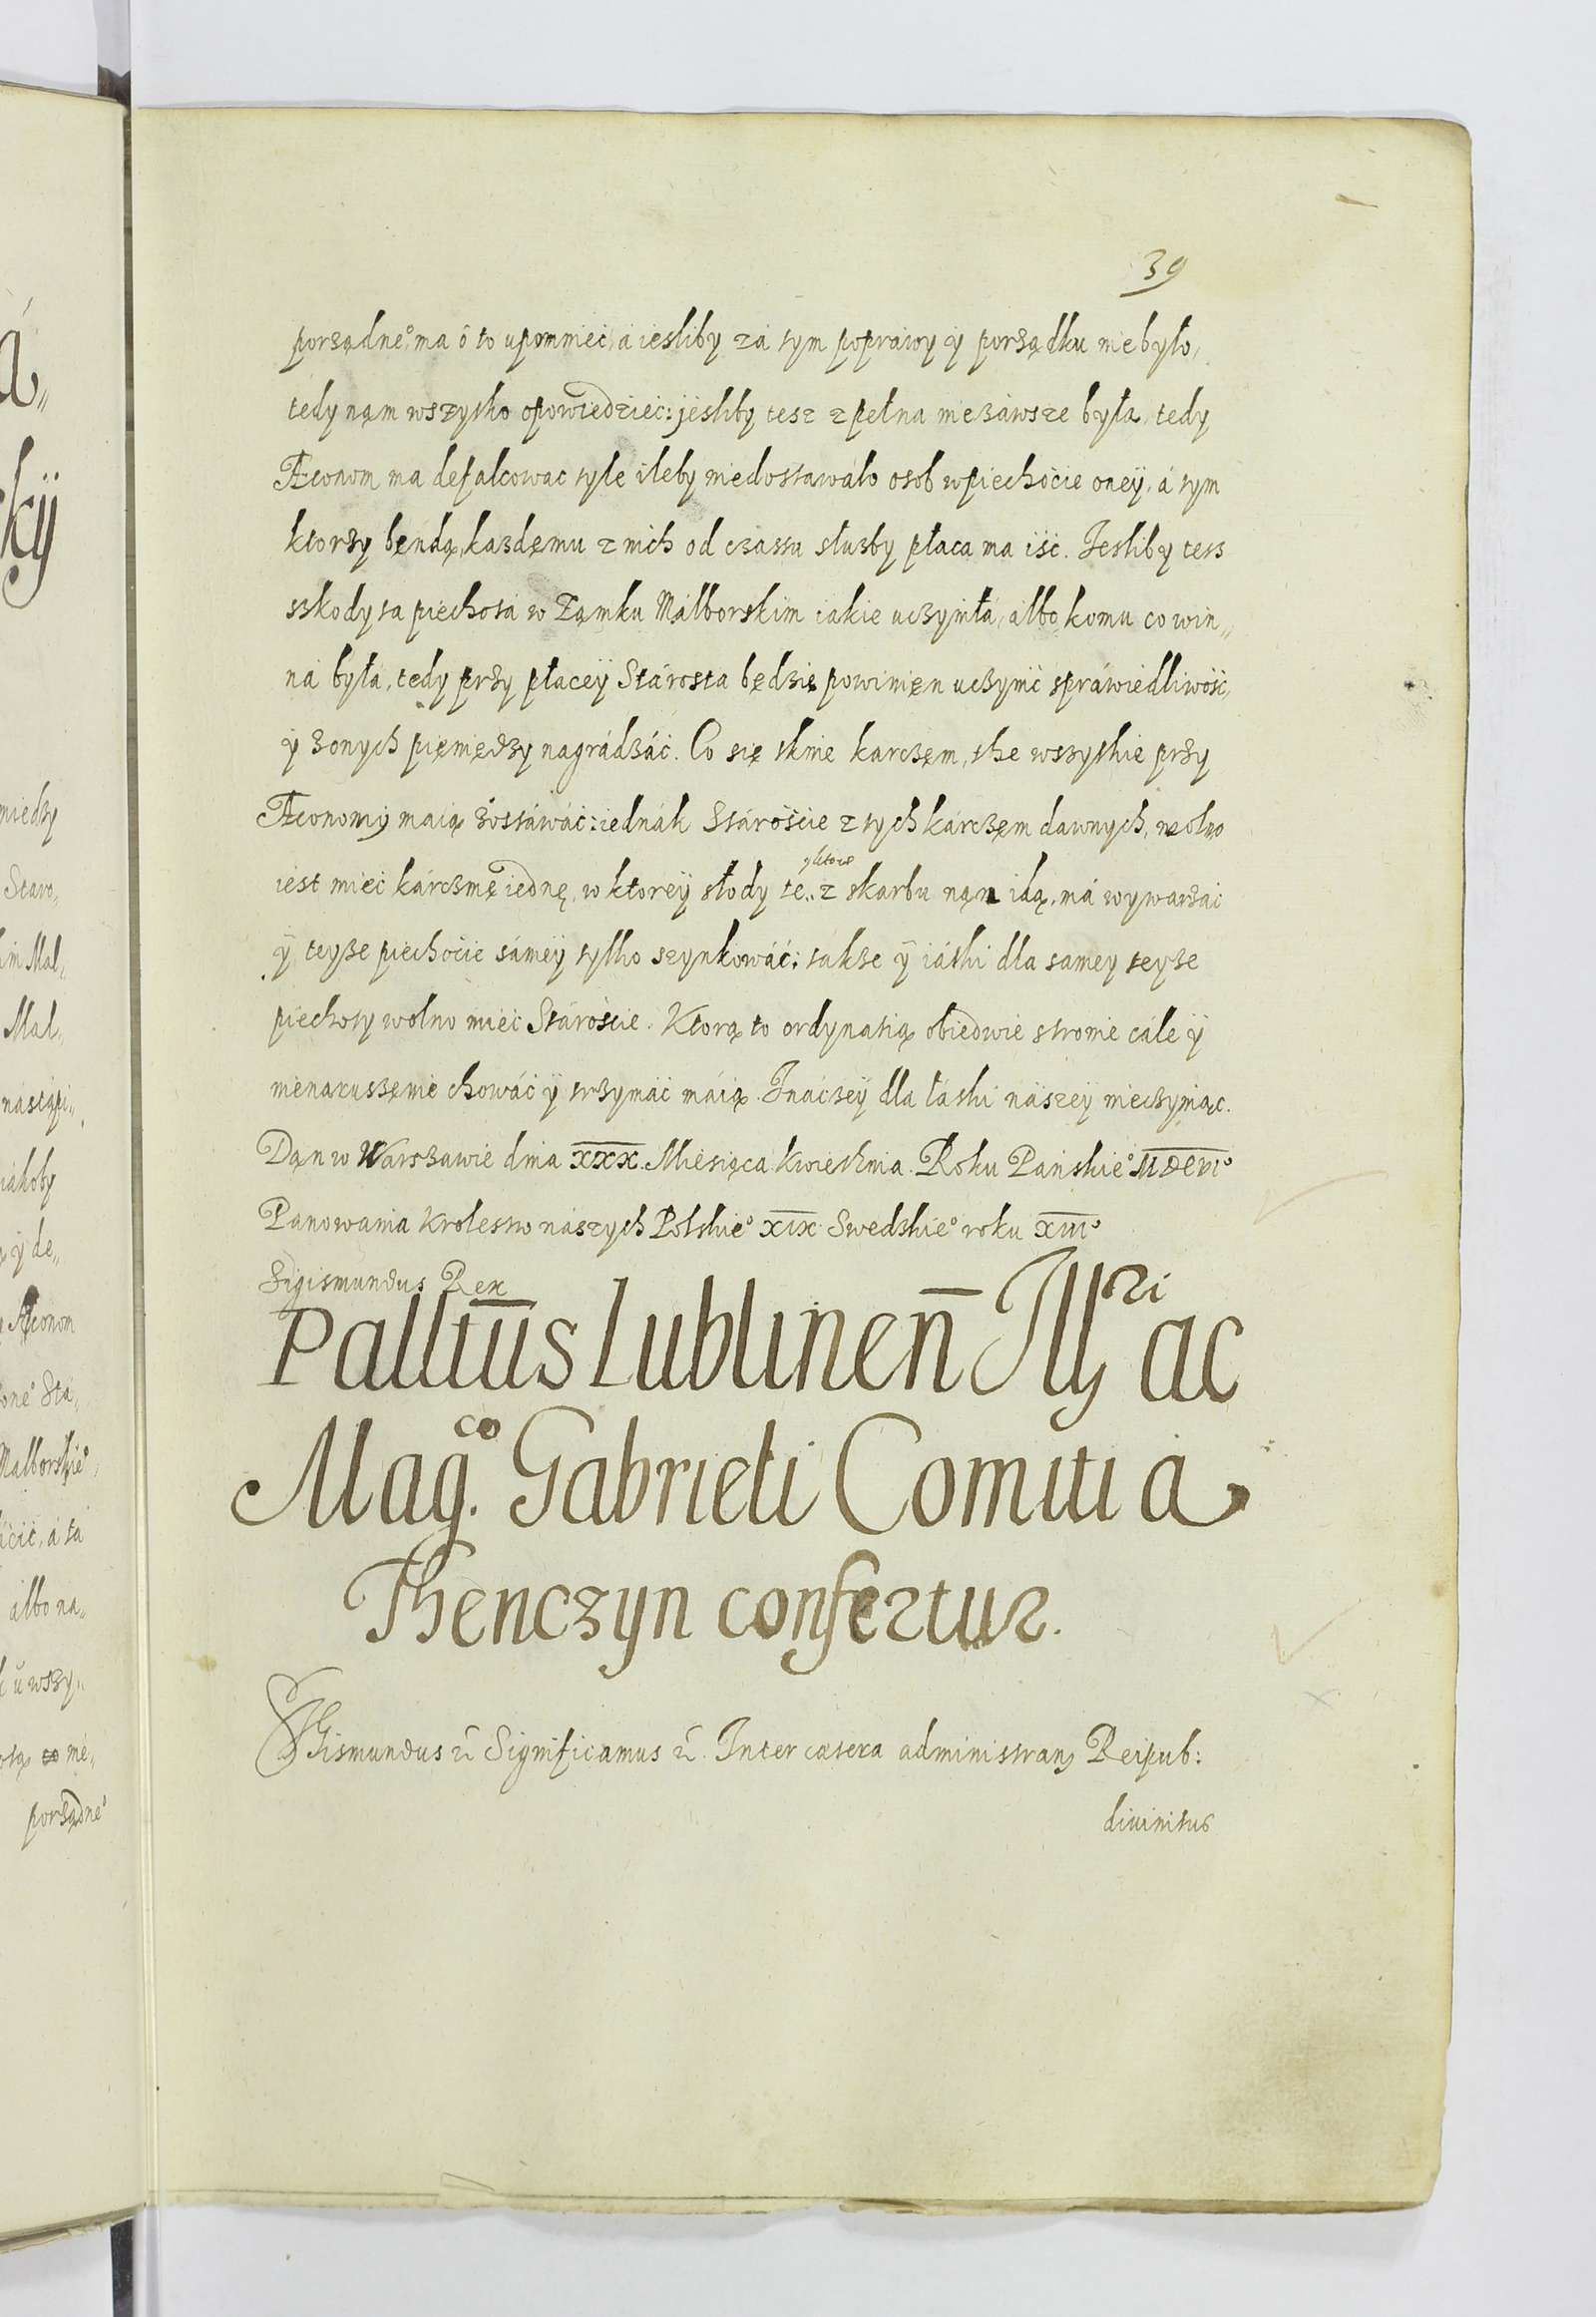 39
porządne° ma o to upomnieć, a iesliby zá tym popráwy y porządku niebyło,
tedy nąm wszytko opowiedzieć: jesliby tesz zpełna niezáwsze była, tedy
Æconom ma defalcowac tyle ileby niedostawáło osob wpiechocie oneÿ, á tym
ktorzy bęndą, kazdęmu z nich od czassu słuzby płaca ma iść. Iesliby tesz
szkody ta piechotá w Ząmku Málborskim iakie uczyniłá, álbo komu co win„
ná byłá, tedy przy płaceÿ Stárosta będzie powinięn uczynić spráwiedliwość,
ÿ zonych pięniędzy nagrádzáć. Co się tknie karczęm, the wszytkie przy
Æconomÿ maią zostáwáć: iednák Stároście z tych kárczęm dawnych, wolno
iest mieć kárczmę iednę, w ktoreÿ słody te„ z skarbu nąm idą, má wywarzać
ÿ teyze piechocie sámeÿ tylko szynkowáć: takze ÿ iátki dla samey teyze
piechoty wolno mieć Stároście. Ktorą to ordynatią obiedwie stronie cále ÿ
nienaruszęnie chowáć ÿ trzymáć máią. Ináczeÿ dla łáski nászeÿ nieczyniąc.
Dąn w Warszawie dnia XXX. Miesiąca kwietnia. Roku Pańskie° MDCVI°
Panowania krolestw nászych Polskie° XIX Swedskie° roku XIII°
Sigismundus Rex
Pallttūs Lublinen̄ Illri ac
Mag.co Gabrieli Comiti á
Thenczyn confertur.
Sgismundus &c Significamus &c. Inter cætera administran Reipub:
diuinitus
á„
kÿ
miedzy
Staro„
im Mal„
Mal„
nástąpi„
iakoby
ÿ de„
Æconom
one° Stá„
Malborskie°,
ićić, á tá
álbo na„
u wszy„
nie„
porządne°